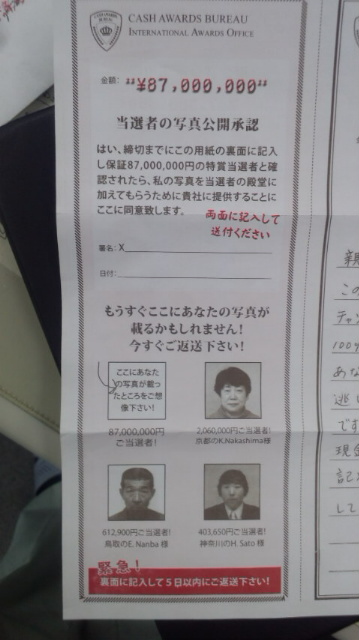 CASH AWARDS BUREAU
INTERNATIONAL AWARDS OFFICE
金額: **¥87,000,000**
当選者の写真公開承認
はい、締切までにこの用紙の裏面に記入
し保証87,000,000円の特賞当選者と確
認されたら、私の写真を当選者の殿堂に
加えてもらうために貴社に提供することに
ここに同意致します。
両面に記入して
送付ください
署名: X
日付:
もうすぐここにあなたの写真が
載るかもしれません!
今すぐご返送下さい!
ここにあなた
の写真が載っ
たところをご想
像下さい!
87,000,000円
ご当選者!
2,060,000円ご当選者!
京都のK.Nakashima様
612,900円ご当選者!
鳥取のE. Nanba 様
403,650円ご当選者!
神奈川のH. Sato 様
緊急!
裏面に記入して5日以内にご返送下さい!
この
チャン
100%
あな
です
現金
して